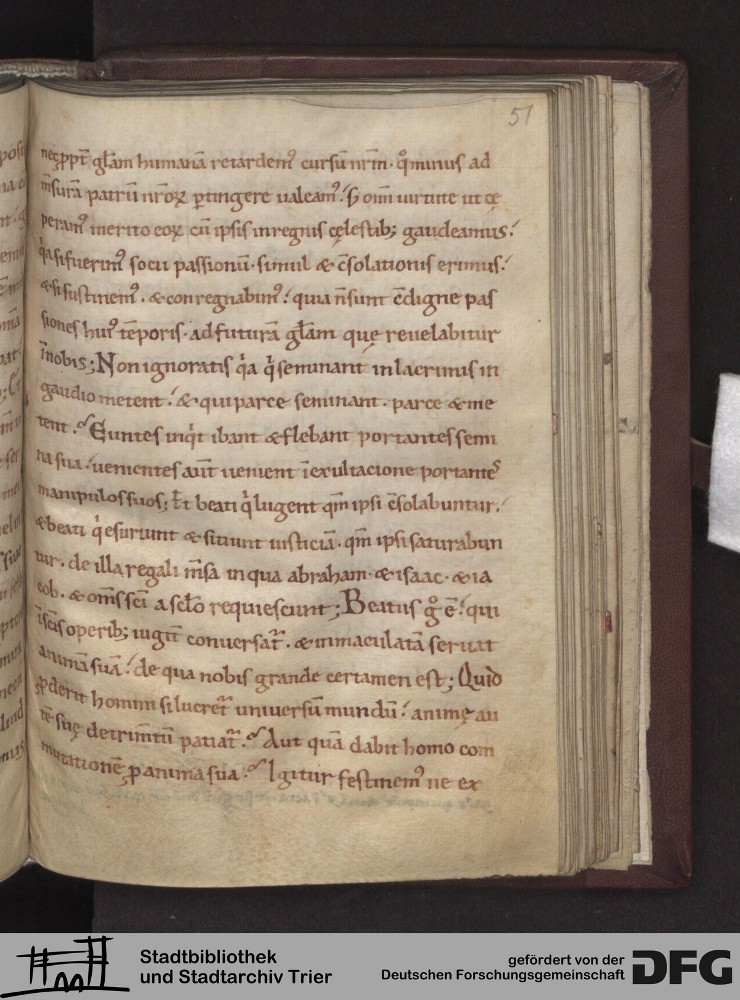 51
necꝓpt̄ gl̄am humanā retardem᷒ cursū nr̄m· qͦminus ad
m̄surā patrū nr̄oꝝ ꝑtingere ualeam᷒; S; omī uirtute ut cę
peram᷒ merito eoꝝ cū ipsis inregnis cęlestib; gaudeamus;
q̓asifuerim᷒ socii passionū· simul & c̄solationis erimus;
&sisustinem᷒· &conregnabim᷒; quia n̄sunt c̄digne pas
siones hui᷒ tēporis· adfuturā gl̄am quę reuelabitur
īnobis; Non ignoratis q̓a q̓ seminant inlacrimis in
gaudio metent; &quiparce seminant· parce &me
tent. Euntes inq̓t ibant &flebant portantes semi
na sua; uenientes aūt uenient īexultacione portantes
manipulos suos; Et beati q̓ lugent qm̄ ipsi c̄solabuntur;
&beati q̓ esuriunt &sitiunt iusticiā· qm̄ ipsi saturabun
tur· de illa regali m̄sa inqua abraham· &isaac· &ia
cob· &om̄s sc̄i a sc̄lo requiescunt; Beatus gͦ ē; qui
īsc̄is operib; iugit̄ conuersat̄· &inmaculatā seruat
animā suā; de qua nobis grande certamen est; Quid
ꝓderit homini silucret̄ uniuersū mundū; animę au
tē suę detrimtū patiat̄. Aut quā dabit homo com
mutationē ꝓ anima sua. Igitur festinem᷒ ne ex
Stadtbibliothek
und Stadtarchiv Trier
gefördert von der
Deutschen Forschungsgemeinschaft
DFG